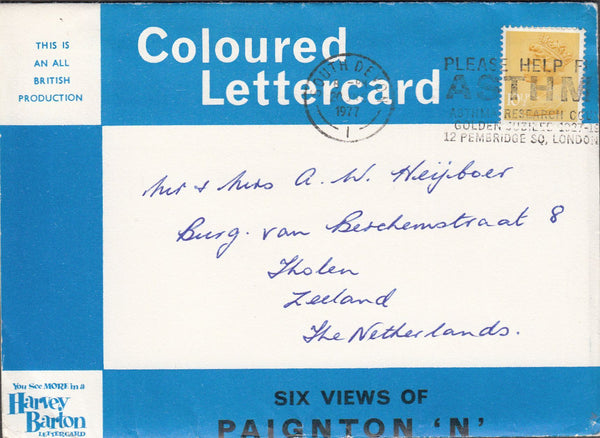 THIS IS
AN ALL
BRITISH
PRODUCTION
Coloured
Lettercard
SOUTH DEVON
1977
1
PLEASE HELP F
ASTHM
ASTHMA RESEARCH COU
GOLDEN JUBILEE 1927-19
12 PEMBRIDGE SQ, LONDON
Mr & Mrs A. W. Heijboer
Burg. van Beschemstraat 8
Tholen
Zeeland
The Netherlands.
You See MORE in a
Harvey
Barton
LETTERCARD
SIX VIEWS OF
PAIGNTON 'N'